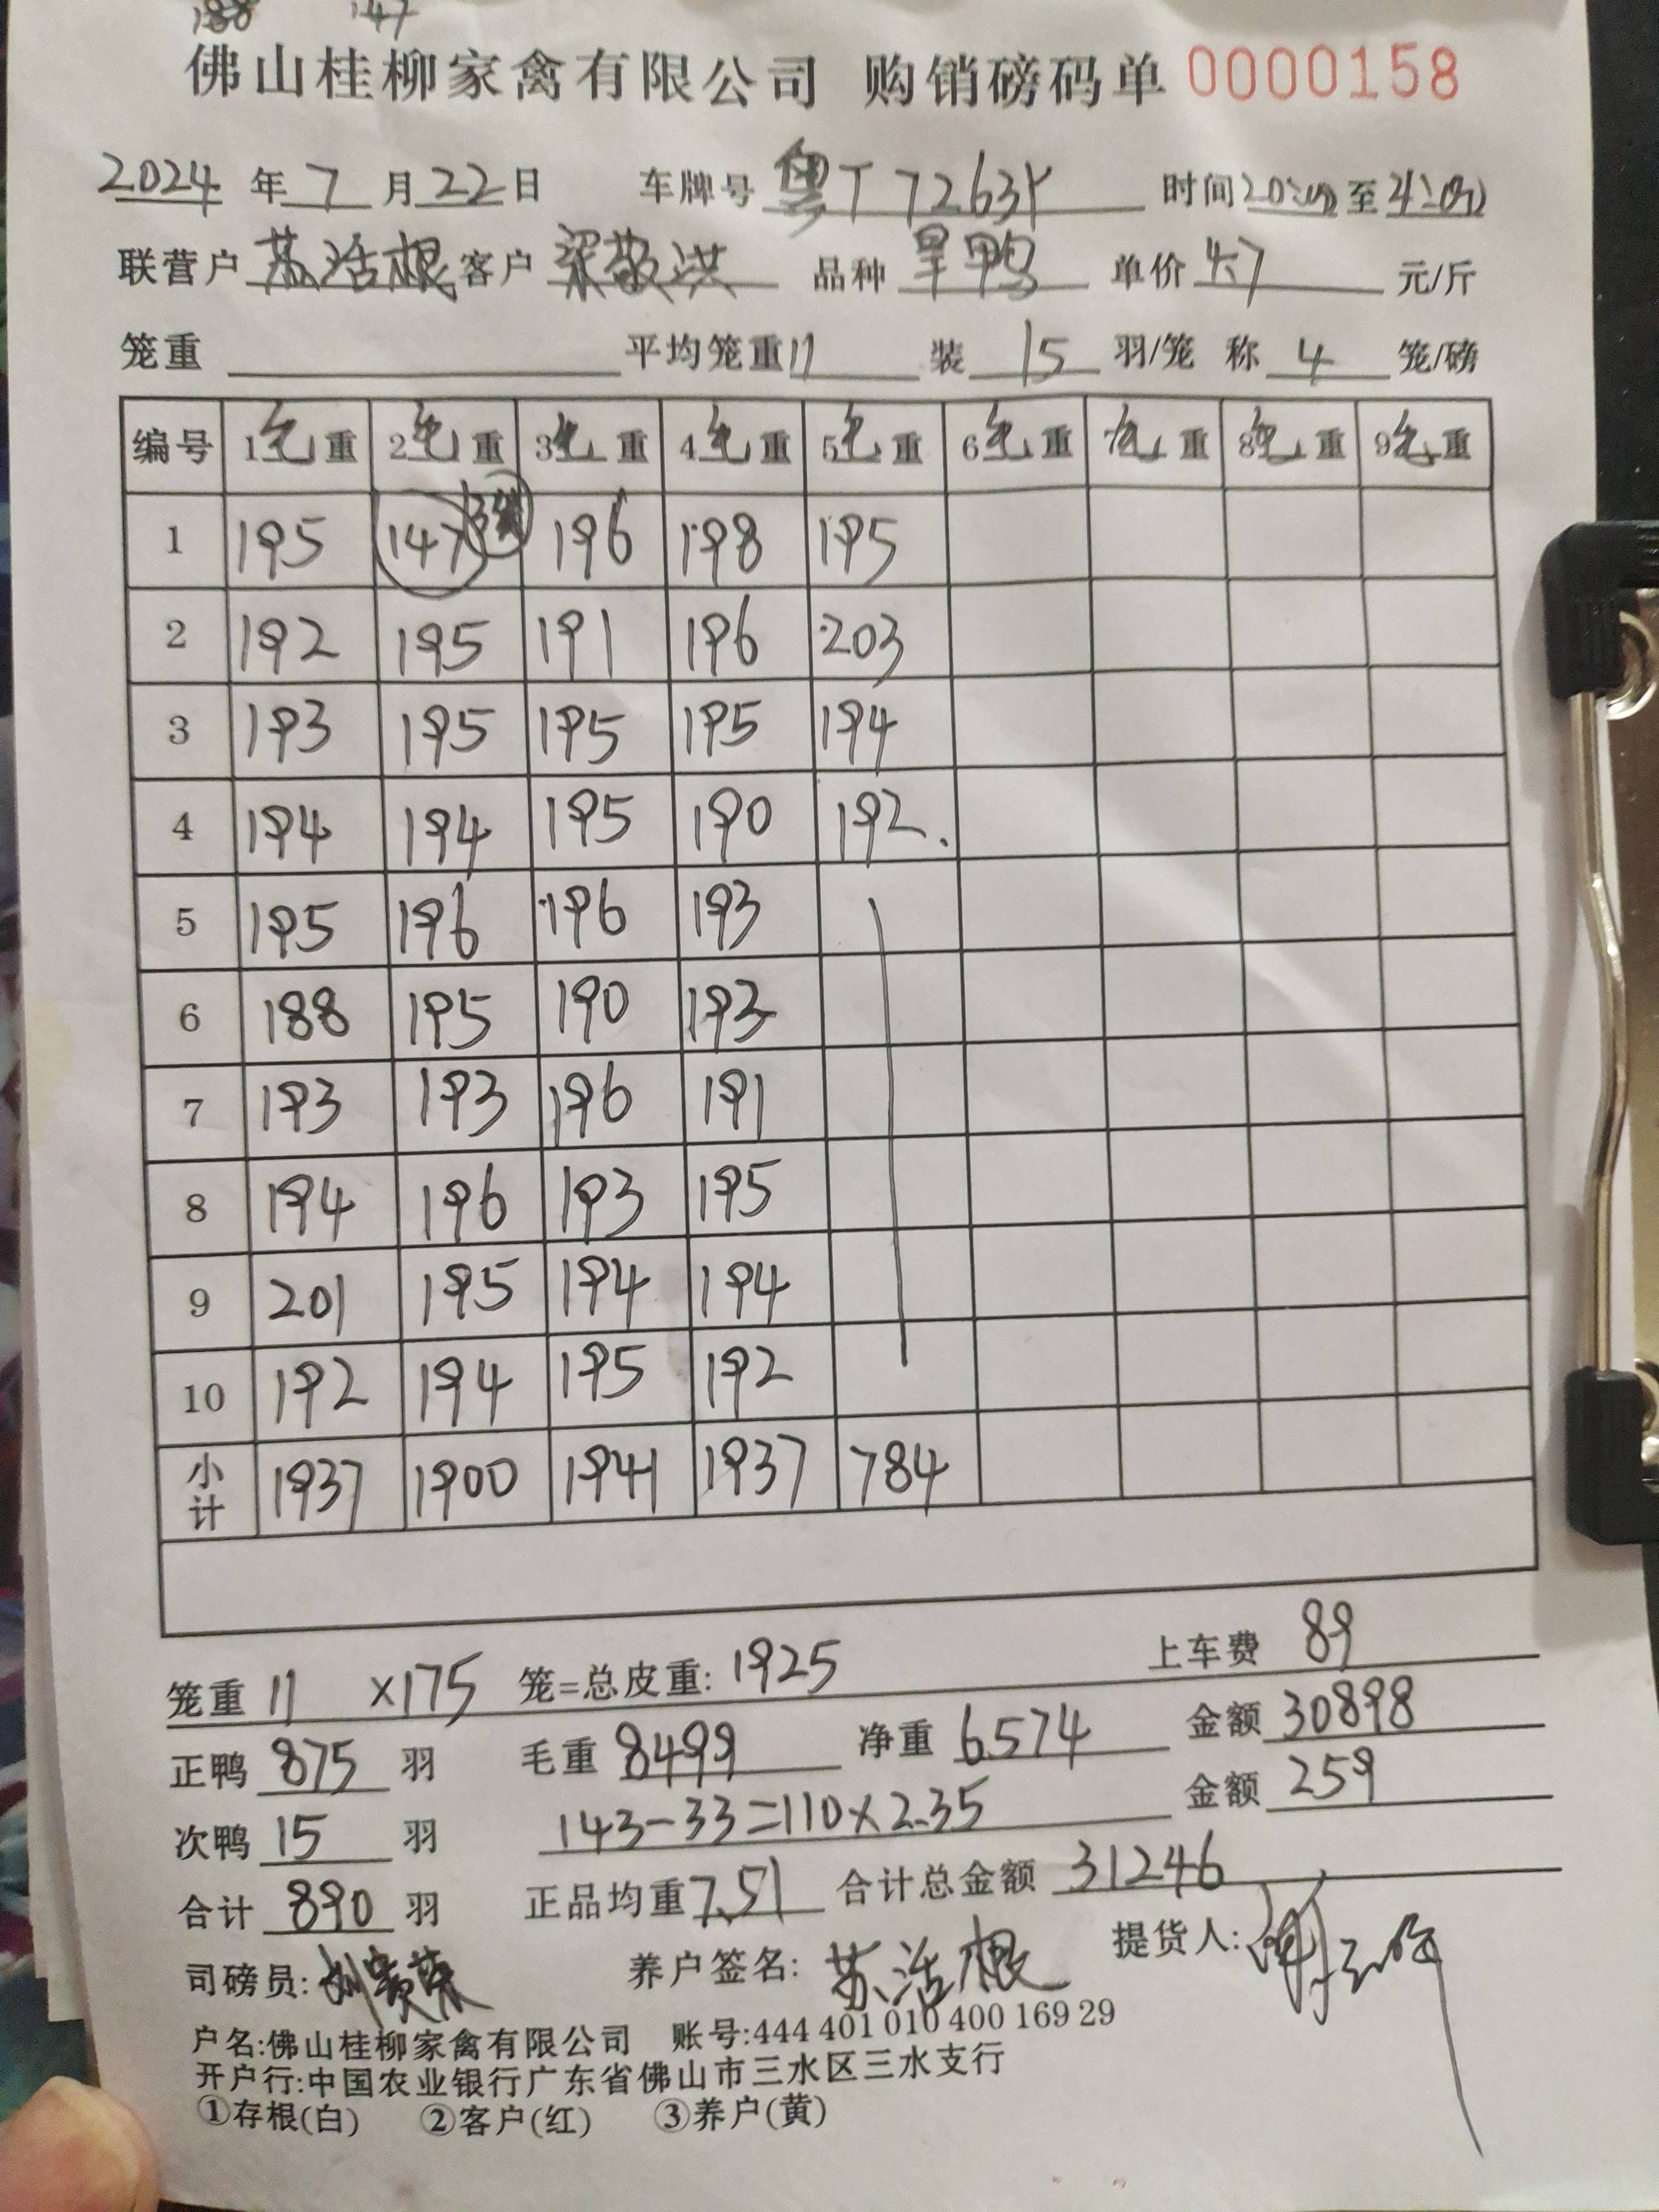 188 147
佛山桂柳家禽有限公司 购销磅码单 0000158
2024 年 7 月 22 日 车牌号 粤T7263Y 时间 至
联营户 苏活根 客户 梁敬洪 品种 旱鸭 单价 4.7 元/斤
笼重 平均笼重 11 装 15 羽/笼 称 4 笼/磅
编号 1毛重 2毛重 3毛重 4毛重 5毛重 6毛重 7毛重 8毛重 9毛重
1 195 147 196 198 195
2 192 195 191 196 203
3 193 195 195 195 194
4 194 194 195 190 192.
5 195 196 196 193
6 188 195 190 193
7 193 193 196 191
8 194 196 193 195
9 201 195 194 194
10 192 194 195 192
小计 1937 1900 1941 1937 784
笼重 11 ×175 笼=总皮重: 1925 上车费 89
正鸭 875 羽 毛重 8499 净重 6574 金额 30898
次鸭 15 羽 143-33=110×2.35 金额 259
合计 890 羽 正品均重 7.51 合计总金额 31246
司磅员: 养户签名: 苏活根 提货人:
户名:佛山桂柳家禽有限公司 账号:444 401 010 400 169 29
开户行:中国农业银行广东省佛山市三水区三水支行
①存根(白) ②客户(红) ③养户(黄)